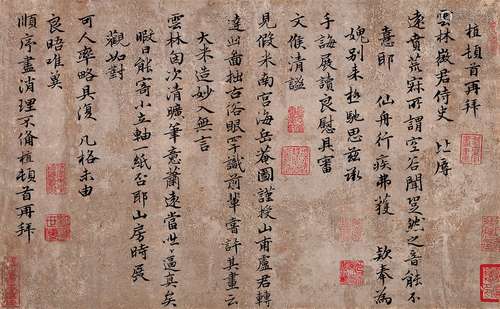 植頓首再拜
雲林徵君侍史 比辱
遠賁荒寂所謂空谷聞跫然之音能不
意耶 仙舟行疾弗獲 欵奉為
媿別來極馳思茲承
手誨展讀良慰具審
文候清謐
見假米南宮海岳菴圖謹授山甫盧君轉
達此啚拙古俗眼罕識前輩嘗評其畫云
大米造妙入無言
雲林因次清曠筆意蕭遠當必逼真矣
暇日能寄小立軸一紙否耶山房時展
觀如對
可人率略具復 凡格未由
良晤唯
順序盡消理不備植頓首再拜